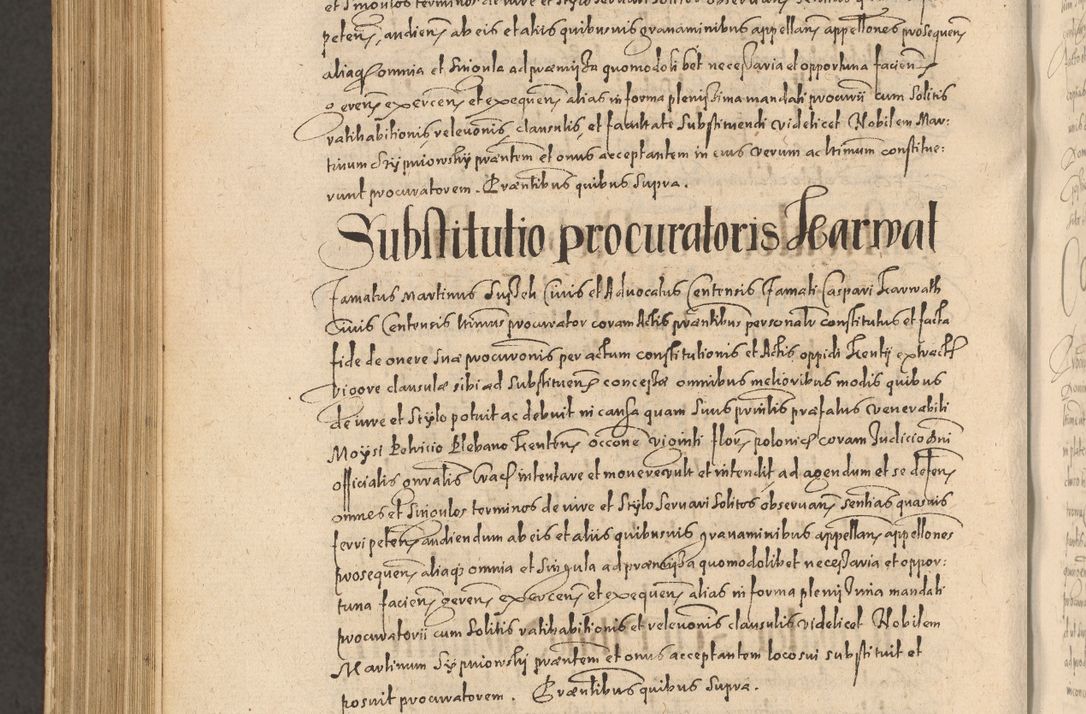 et Singulos terminos de iure et stylo servari solitos observan
peten, audien, ab eis et aliis quibusvis gravaminibus appellan, appellones prosequen
aliaq omnia et singula ad præmissa quomodolibet necessaria et opportuna facien
geren, exercen, et exequen, alias in forma plenissima mandati procurii cum solitis
ratihabitionis, relevonis, clausulis, et facultate substituendi videlicet Nobilem Mar:
tinum præntem et onus acceptantem in eius verum ac ltimum constitue:
runt procuratorem. Præntibus quibus supra.
Substitutio procuratoris Karwat
Famatus Martinus Civis et Advocatus Centensis Famati Caspari Karwath
Civis Centensis ltimus procurator coram Actis præntibus personalr constitutus et facta
fide de onere suæ procuronis per actum constitutionis et Actis oppidi Kentij extract
vigore clausulæ sibi ad substituen concessæ omnibus melioribus modis quibus
de iure et stylo potuit ac debuit in causa quam suus prinlis præfatus venerabili
Moysi Petricio Plebano Kenten occone viginti floren polonic coram Judicio dni
officialis gnralis Crac intentare et movere vult et intendit ad agendum et se defen
omnes et singulos terminos de iure et stylo servari solitos observan, sentias quasvis
ferri peten, audiendum ab eis et aliis quibusvis gravaminibus appellan, appellones
prosequen, aliaq omnia et singula ad præmissa quomodolibet necessaria et oppor:
tuna facien, geren, exercen, et exequen, alias in forma plenissima mandati
procuratorii cum solitis ratihabitionis et relevonis clausulis videlicet Nobilem
Martinum præntem et onus acceptantem loco sui substituit et
posuit procuratorem. Præntibus quibus supra.